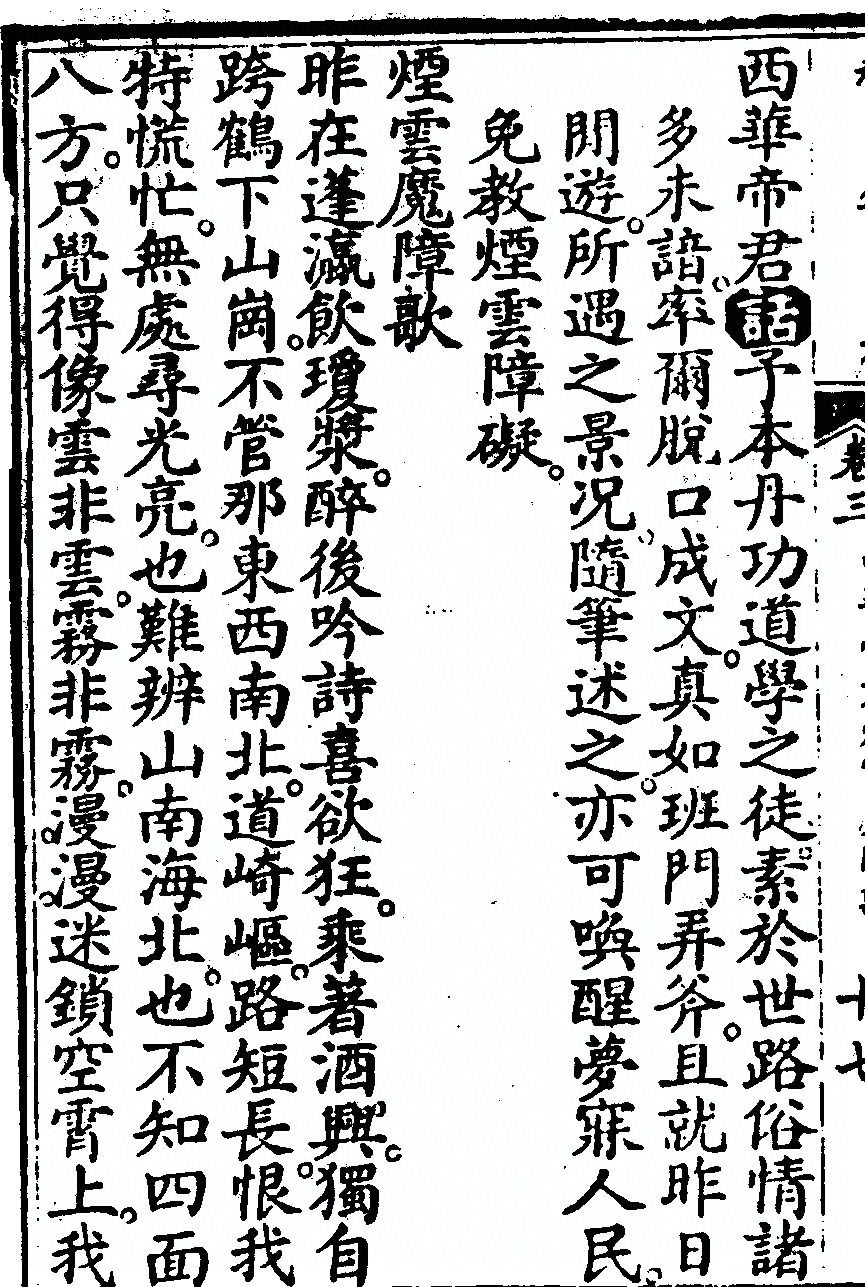 卷三
十七
西華帝君詰予本丹功道學之徒素於世路俗情諸
多未諳率爾脫口成文真如班門弄斧且就昨日
閒遊所遇之景况隨筆述之亦可喚醒夢寐人民
免教煙雲障礙
煙雲魔障歌
昨在蓬瀛飲瓊漿醉後吟詩喜欲狂乘著酒興獨自
跨鶴下山崗不管那東西南北道崎嶇路短長恨我
特慌忙無處尋光亮也難辨山南海北也不知四面
八方只覺得像雲非雲霧非霧漫漫迷鎖空霄上我